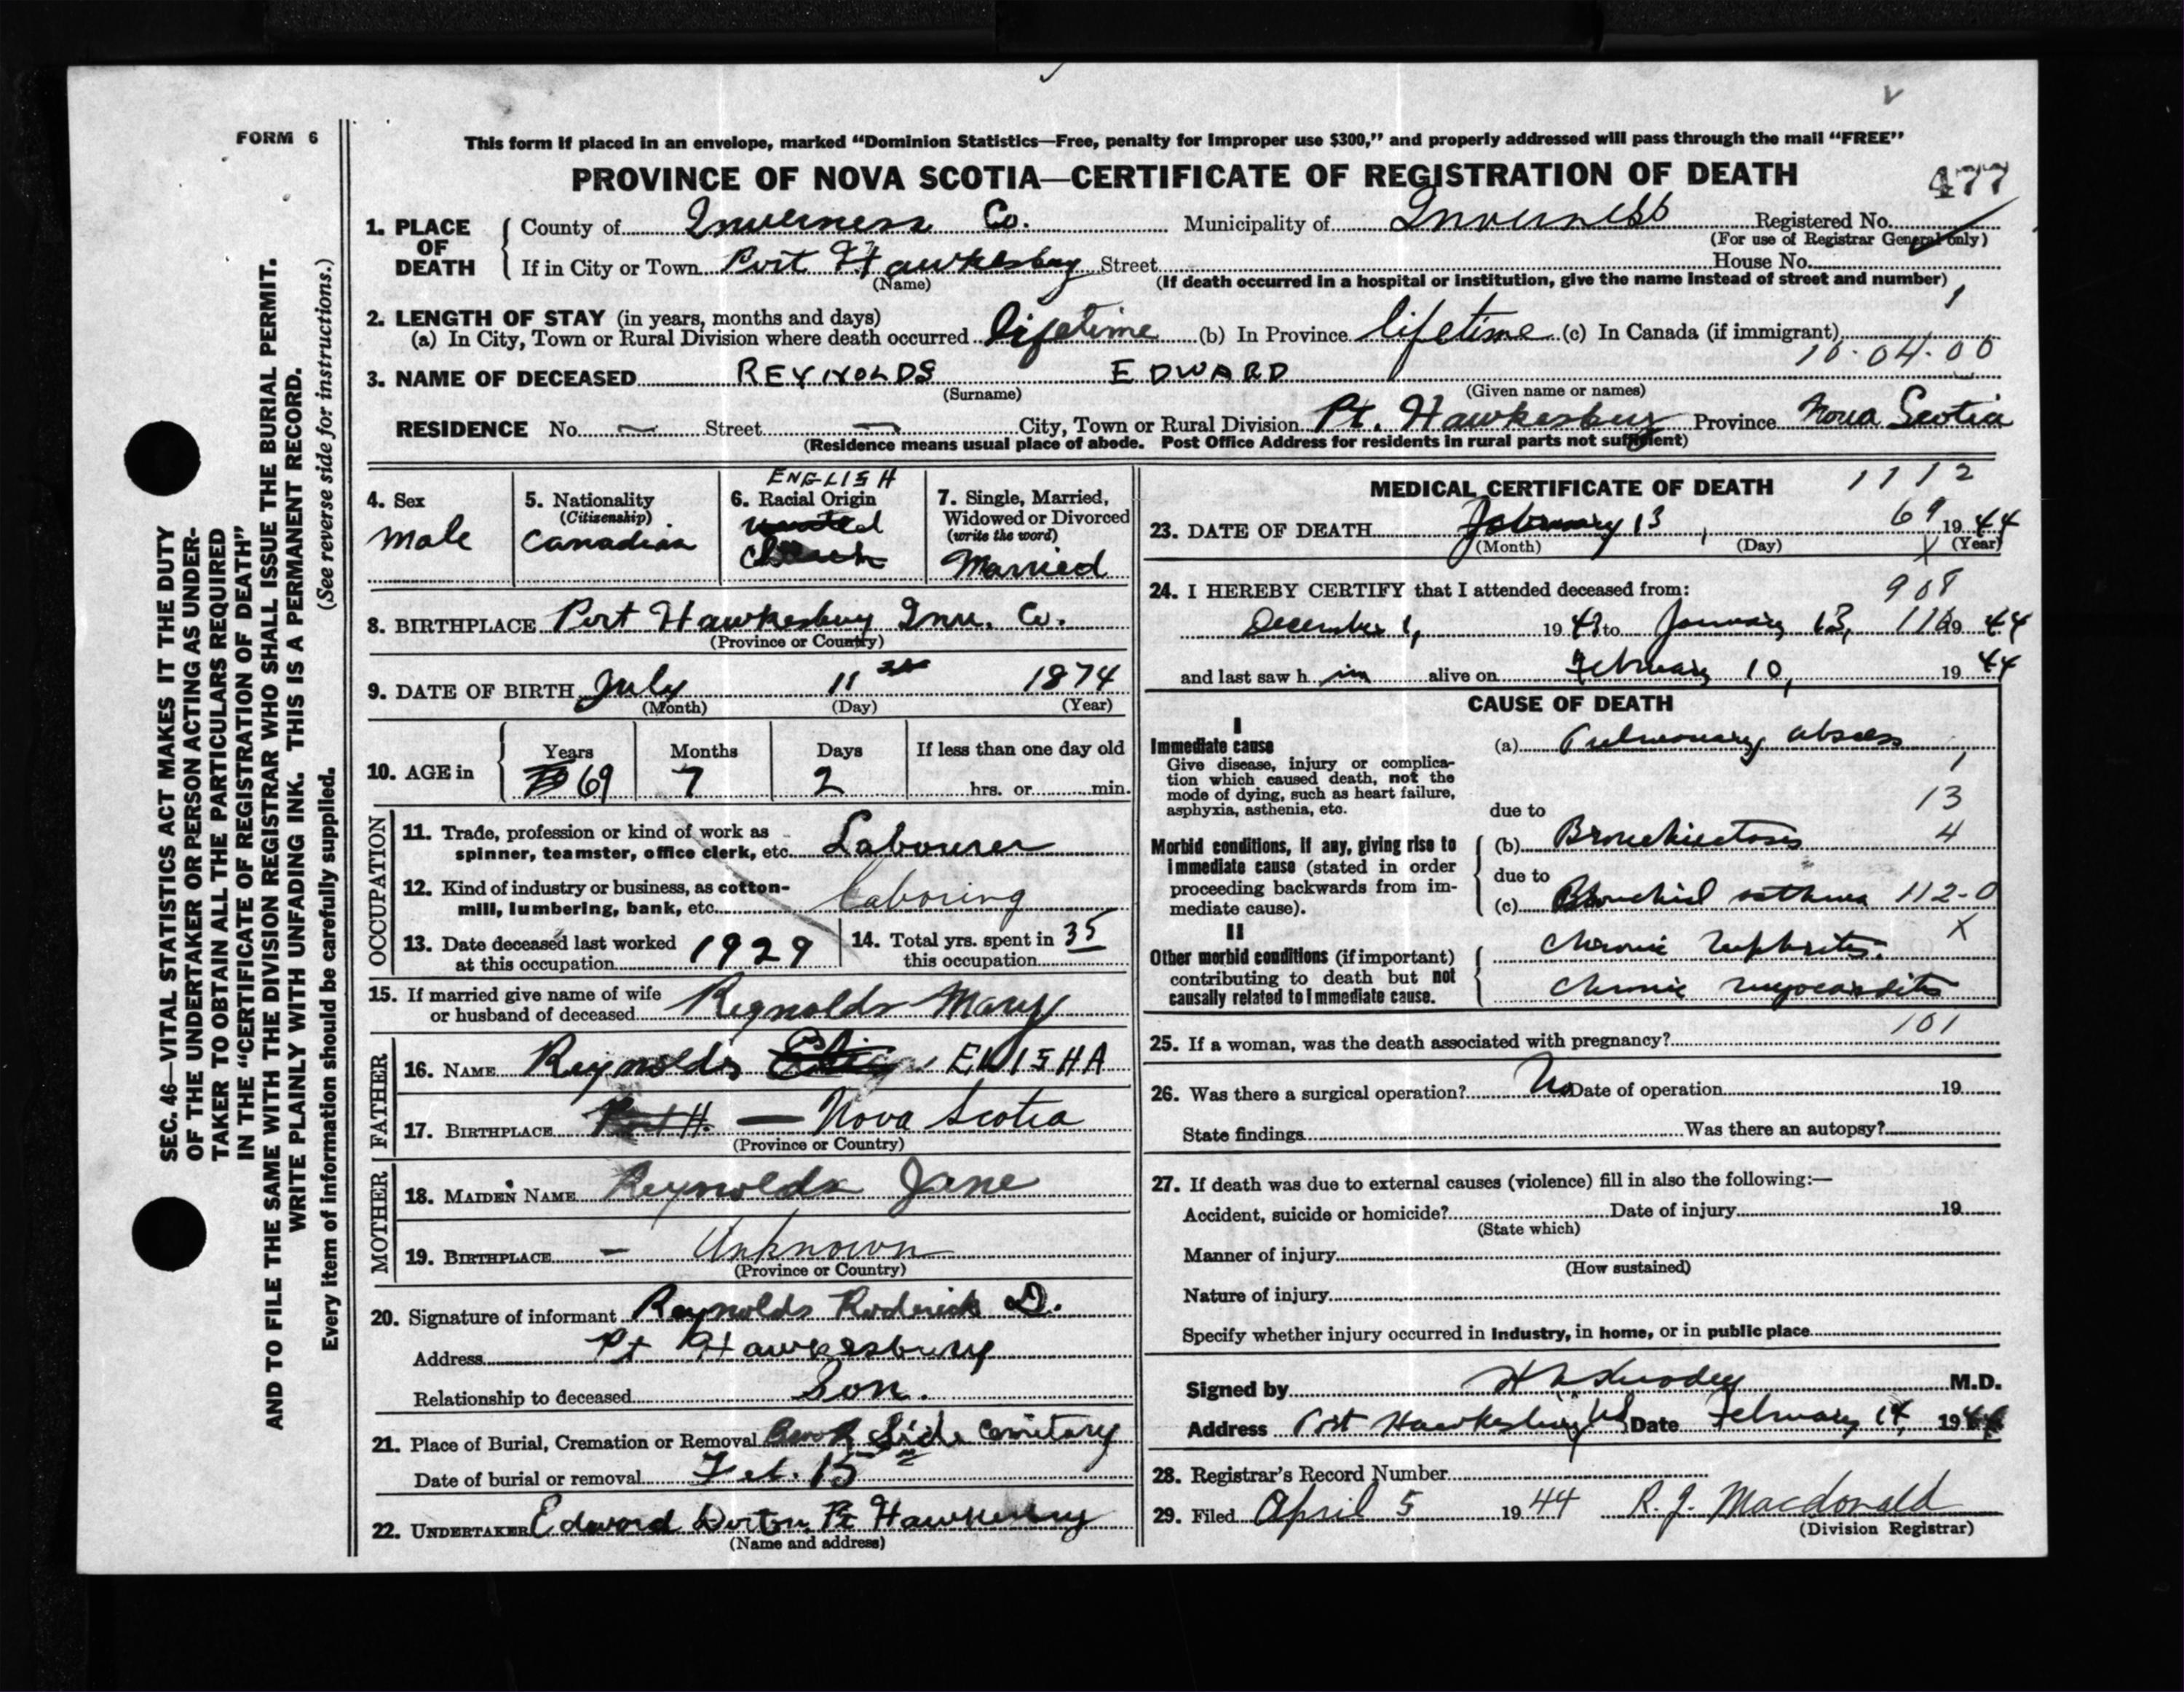 FORM 6
This form if placed in an envelope, marked “Dominion Statistics—Free, penalty for improper use $300,” and properly addressed will pass through the mail “FREE”
PROVINCE OF NOVA SCOTIA—CERTIFICATE OF REGISTRATION OF DEATH
477
1. PLACE OF DEATH County of Inverness Co. Municipality of Inverness Registered No.
(For use of Registrar General only)
If in City or Town Port Hawkesbury Street House No.
(Name) (If death occurred in a hospital or institution, give the name instead of street and number)
1
2. LENGTH OF STAY (in years, months and days)
(a) In City, Town or Rural Division where death occurred lifetime (b) In Province lifetime (c) In Canada (if immigrant)
10-04-00
3. NAME OF DECEASED REYNOLDS EDWARD
(Surname) (Given name or names)
RESIDENCE No. — Street — City, Town or Rural Division Pt. Hawkesbury Province Nova Scotia
(Residence means usual place of abode. Post Office Address for residents in rural parts not sufficient)
4. Sex
Male
5. Nationality
(Citizenship)
Canadian
ENGLISH
6. Racial Origin
United
Church
7. Single, Married,
Widowed or Divorced
(write the word)
Married
8. BIRTHPLACE Port Hawkesbury Inv. Co.
(Province or Country)
9. DATE OF BIRTH July 11 1874
(Month) (Day) (Year)
10. AGE in Years Months Days If less than one day old
69 7 2 hrs. or min.
OCCUPATION
11. Trade, profession or kind of work as
spinner, teamster, office clerk, etc. Labourer
12. Kind of industry or business, as cotton-
mill, lumbering, bank, etc. Laboring
13. Date deceased last worked
at this occupation 1929
14. Total yrs. spent in
this occupation 35
15. If married give name of wife
or husband of deceased Reynolds Mary
FATHER
16. NAME Reynolds ELISHA
17. BIRTHPLACE Port H. — Nova Scotia
(Province or Country)
MOTHER
18. MAIDEN NAME Reynolds Jane
19. BIRTHPLACE — Unknown
(Province or Country)
20. Signature of informant Reynolds Roderick D.
Address Pt Hawkesbury
Relationship to deceased Son.
21. Place of Burial, Cremation or Removal Side Cemitary
Date of burial or removal Feb. 15
22. UNDERTAKER Edward Pt Hawkesbury
(Name and address)
MEDICAL CERTIFICATE OF DEATH 1112
23. DATE OF DEATH February 13, 69 1944
(Month) (Day) (Year)
X
24. I HEREBY CERTIFY that I attended deceased from:
908
December 1, 1943 to January 13, 116 1944
and last saw h im alive on February 10, 1944
CAUSE OF DEATH
I
Immediate cause
Give disease, injury or complica-
tion which caused death, not the
mode of dying, such as heart failure,
asphyxia, asthenia, etc.
(a) Pulmonary abscess
1
13
due to
Morbid conditions, if any, giving rise to
immediate cause (stated in order
proceeding backwards from im-
mediate cause).
(b) Bronchiectosis 4
due to
(c) Bronchial asthma 112-0
X
II
Other morbid conditions (if important)
contributing to death but not
causally related to immediate cause.
Chronic nephritis.
Chronic myocarditis
101
25. If a woman, was the death associated with pregnancy?
26. Was there a surgical operation? No Date of operation 19
State findings Was there an autopsy?
27. If death was due to external causes (violence) fill in also the following:—
Accident, suicide or homicide? Date of injury 19
(State which)
Manner of injury
(How sustained)
Nature of injury
Specify whether injury occurred in industry, in home, or in public place
Signed by M.D.
Address Port Hawkesbury NS Date February 14, 1944
28. Registrar's Record Number
29. Filed April 5 1944 R. J. Macdonald
(Division Registrar)
SEC. 46—VITAL STATISTICS ACT MAKES IT THE DUTY
OF THE UNDERTAKER OR PERSON ACTING AS UNDER-
TAKER TO OBTAIN ALL THE PARTICULARS REQUIRED
IN THE “CERTIFICATE OF REGISTRATION OF DEATH”
AND TO FILE THE SAME WITH THE DIVISION REGISTRAR WHO SHALL ISSUE THE BURIAL PERMIT.
WRITE PLAINLY WITH UNFADING INK. THIS IS A PERMANENT RECORD.
Every item of information should be carefully supplied. (See reverse side for instructions.)